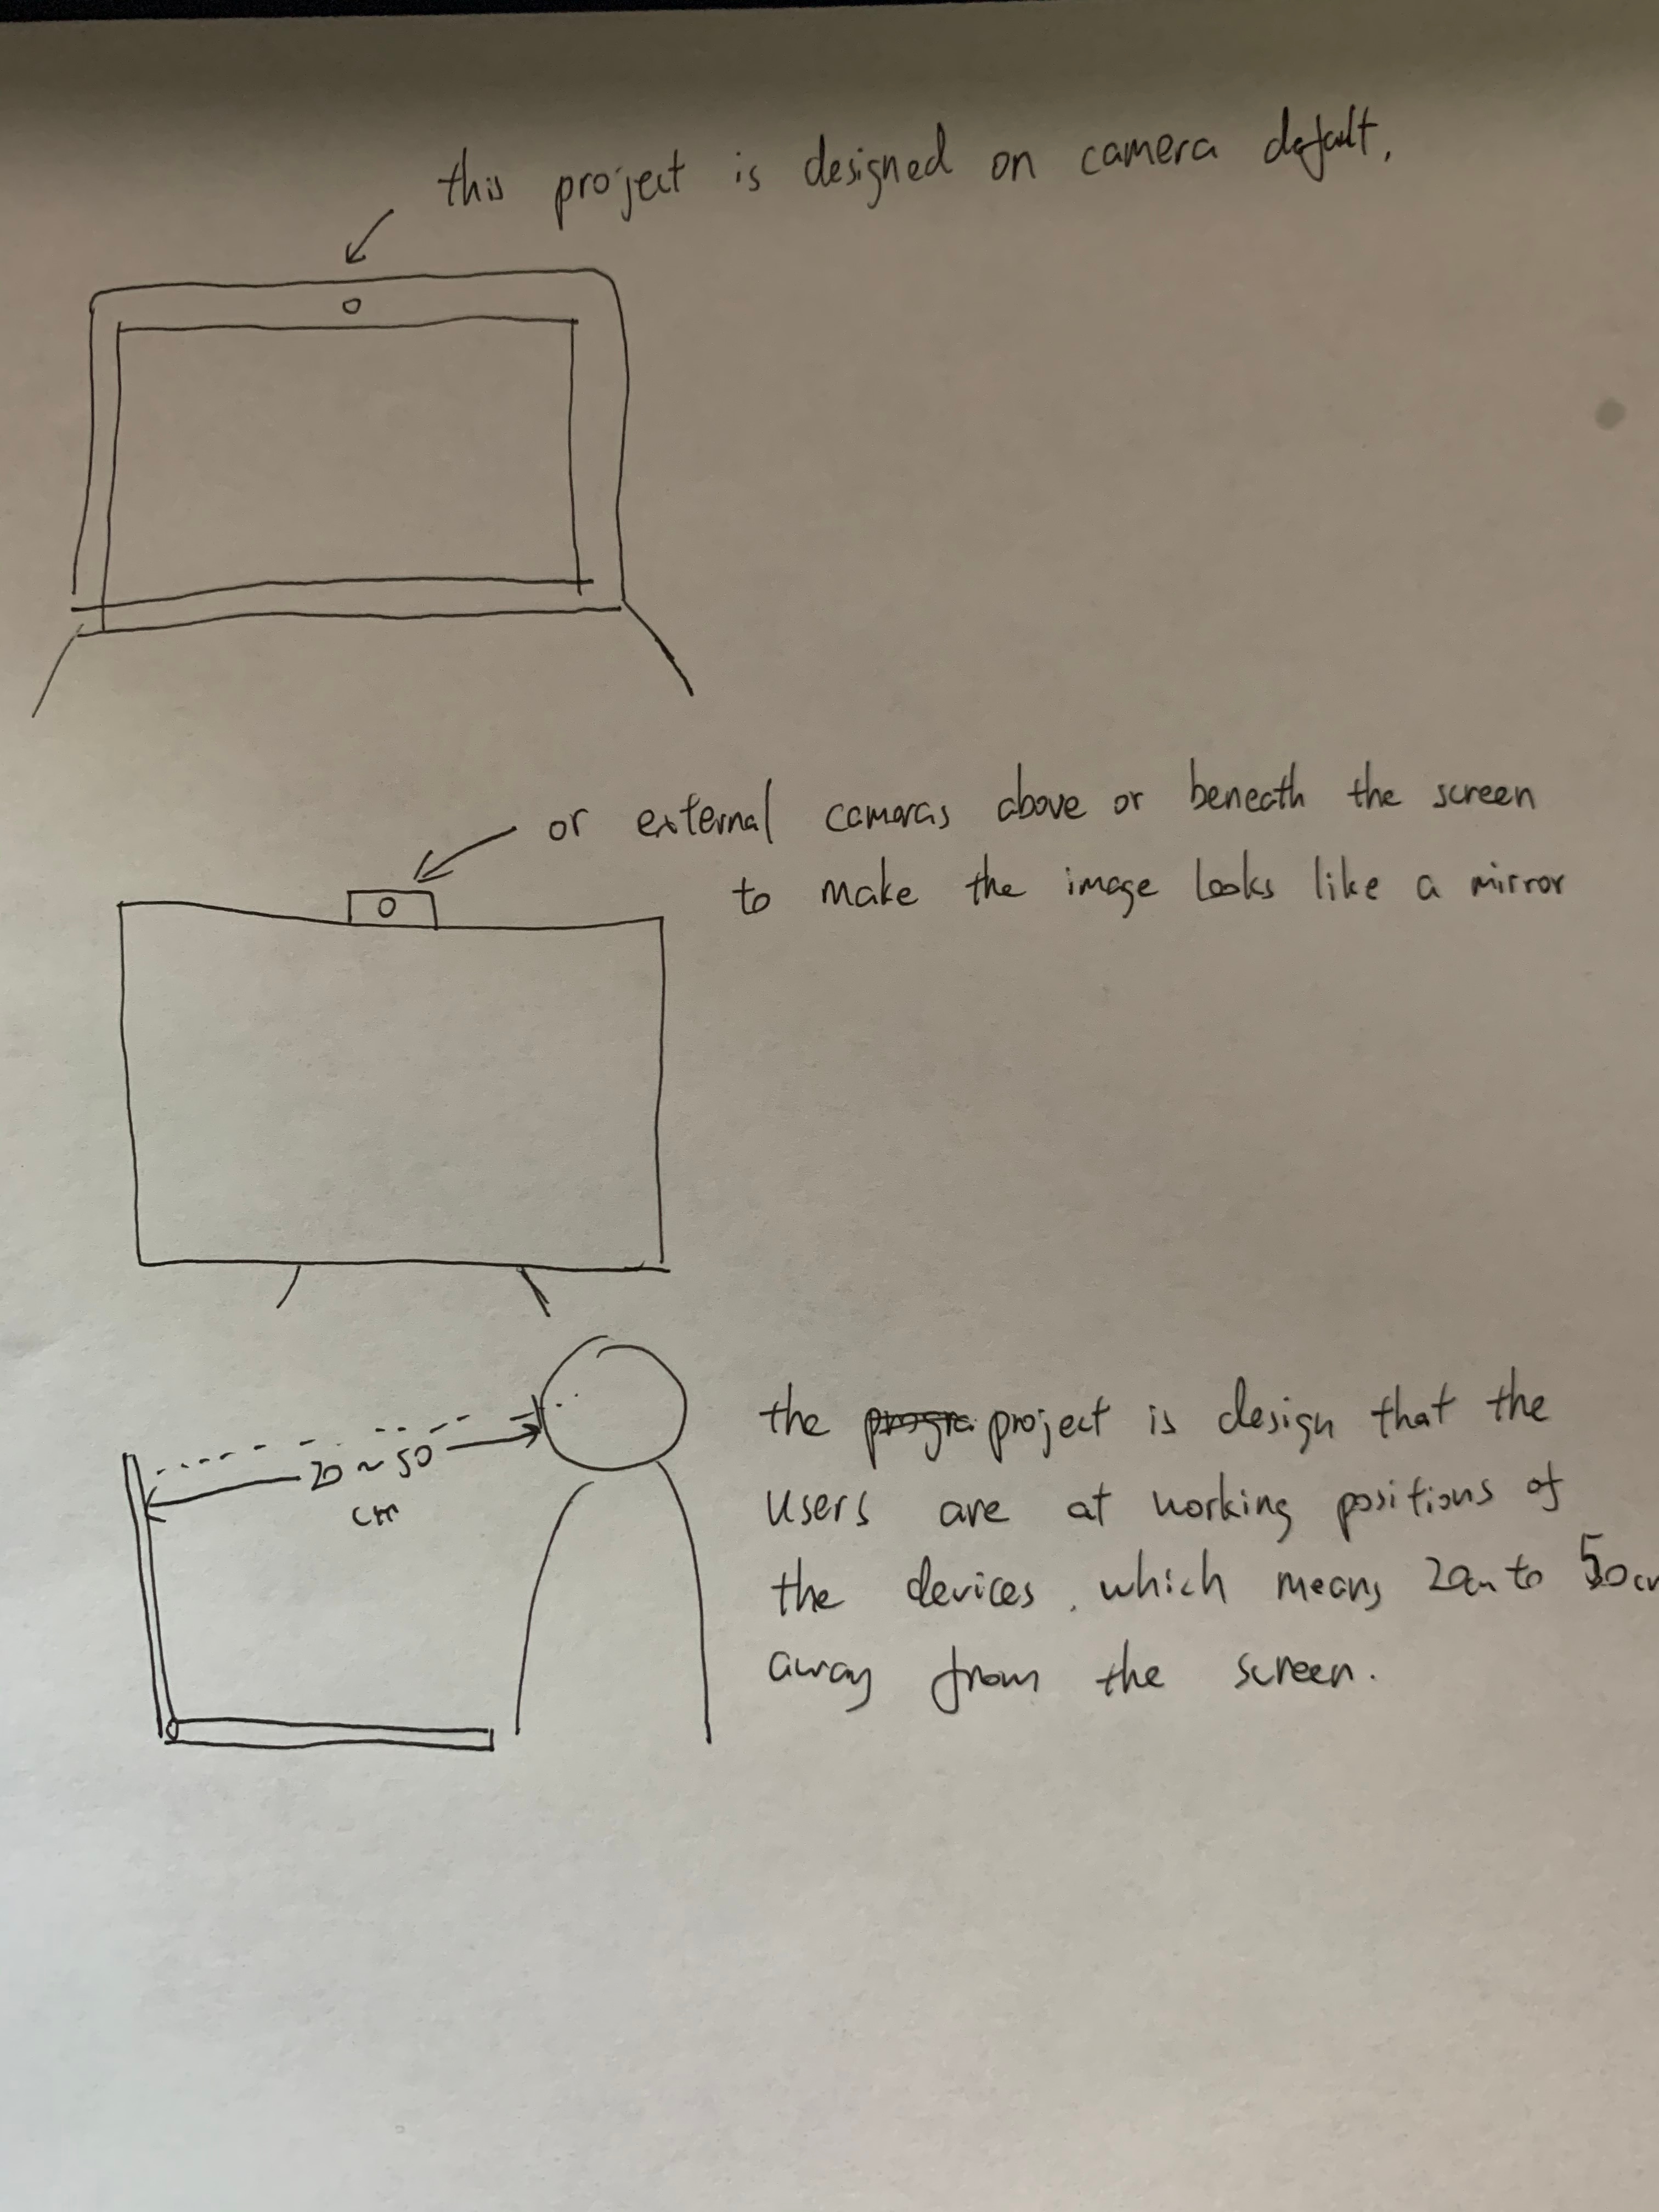 this project is designed on camera default.
or external cameras above or beneath the screen
to make the image looks like a mirror
20 ~ 50
cm
the project is design that the
users are at working positions of
the devices, which means 20cm to 50cm
away from the screen.